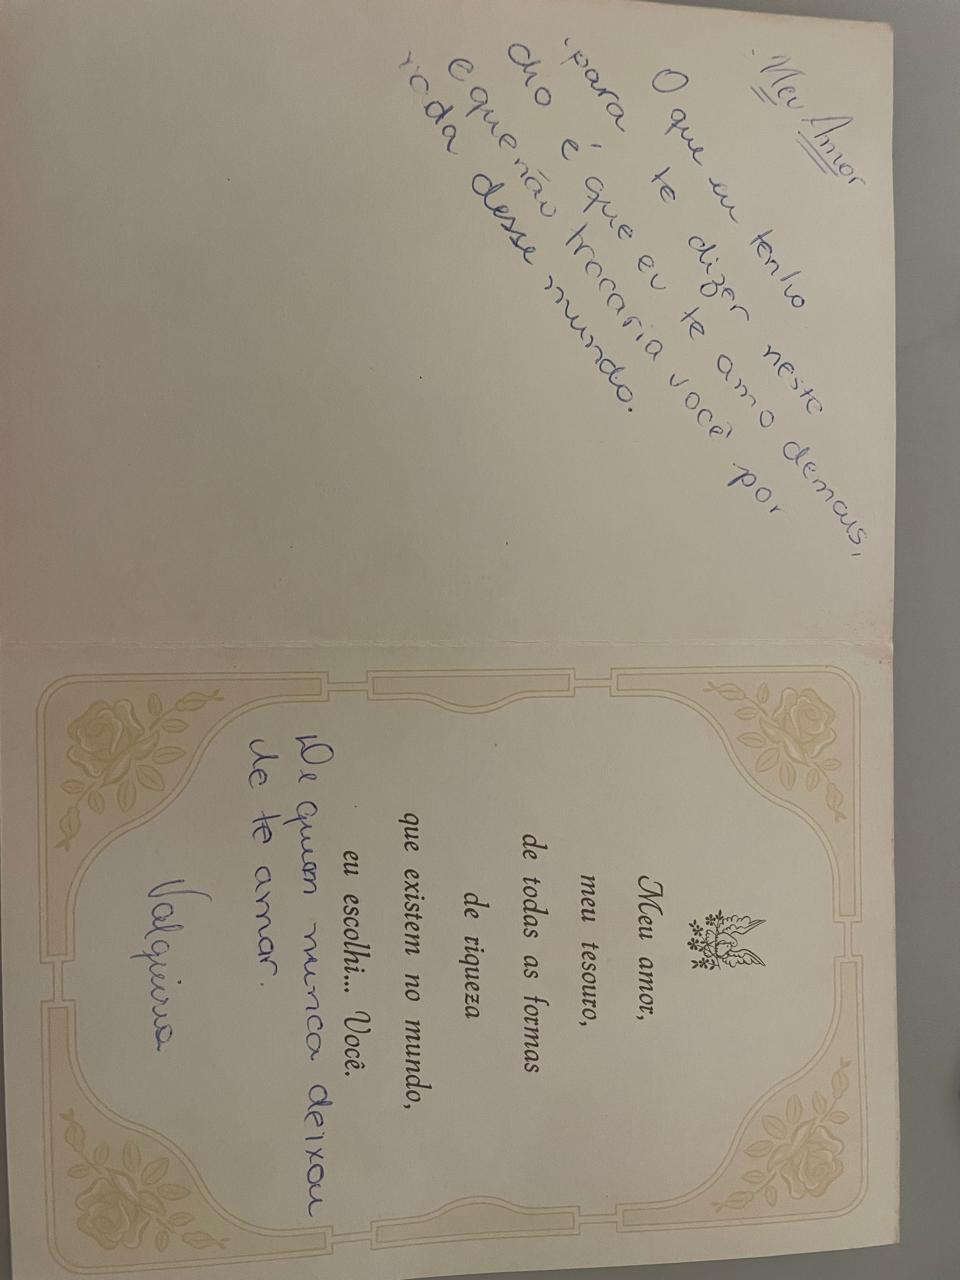 Meu Amor
O que eu tenho
para te dizer neste
dia é que eu te amo demais,
e que não trocaria você por
nada desse mundo.
Meu amor,
meu tesouro,
de todas as formas
de riqueza
que existem no mundo,
eu escolhi... Você.
De quem nunca deixou
de te amar.
Valquiria